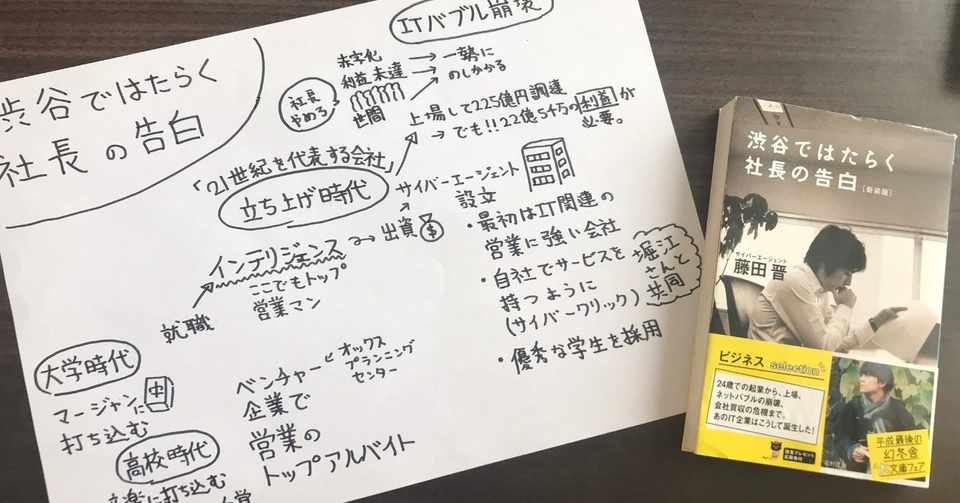 渋谷ではたらく
社長の告白
ITバブル崩壊
赤字化
利益未達
世間
一勢に
のしかかる
社長
やめろ
上場して225億円調達
でも!!22億5千万の利益が
必要。
「21世紀を代表する会社」
立ち上げ時代
サイバーエージェント
設立
・最初はIT関連の
営業に強い会社
・自社でサービスを
持つように
(サイバークリック)
堀江
さんと
共同
・優秀な学生を採用
インテリジェンス
出資
ここでもトップ
営業マン
就職
大学時代
マージャンに
打ち込む
中
ベンチャー
企業で
営業の
トップアルバイト
オックス
プランニング
センター
高校時代
渋谷ではたらく
社長の告白
[新装版]
サイバーエージェント
藤田晋
ビジネス
selection
24歳での起業から、上場、
ネットバブルの崩壊、
会社買収の危機まで。
あのIT企業はこうして誕生した!
平成最後の
幻冬舎
文庫フェア